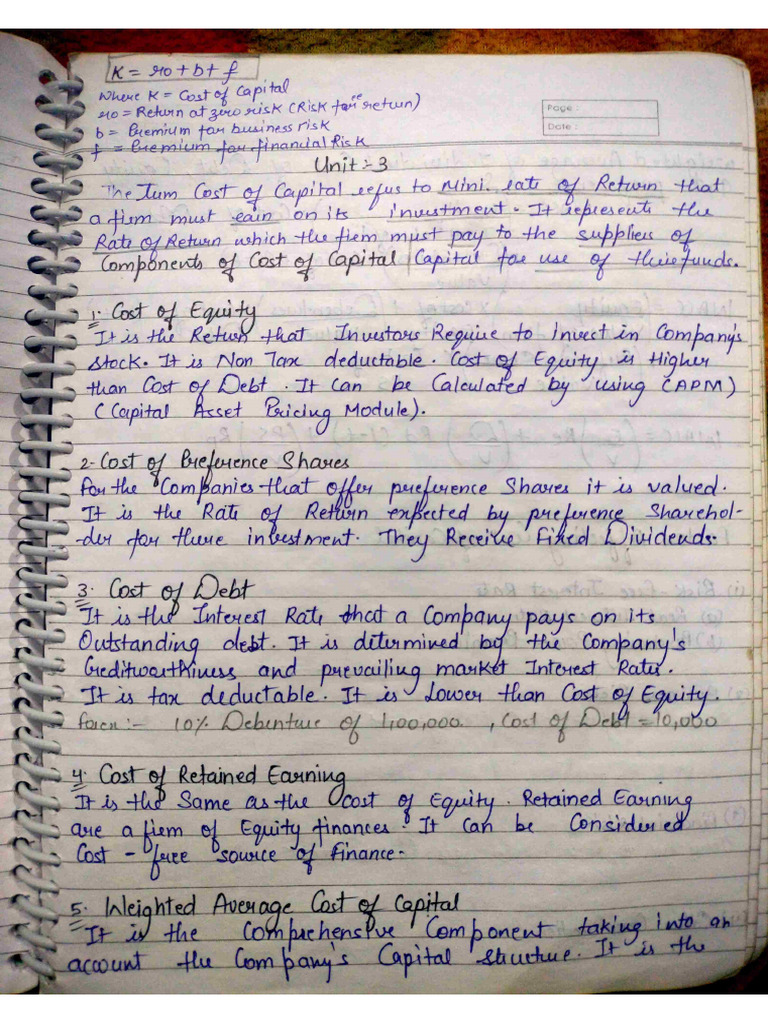 K = ro + b + f
Where K = Cost of Capital
ro = Return at zero risk (Risk free return)
b = Premium for business risk
f = Premium for financial Risk
Page :
Date :
Unit :- 3
The Tum Cost of Capital refus to Mini. rate of Return that
a firm must earn on its investment. It represents the
Rate of Return which the firm must pay to the suppliers of
Capital for use of their funds.
Components of Cost of Capital
1. Cost of Equity
It is the Return that Investors Require to invest in Company's
stock. It is Non Tax deductable. Cost of Equity is Higher
than Cost of Debt. It can be Calculated by using CAPM)
(Capital Asset Pricing Module).
2- Cost of Preference Shares
for the Companies that offer preference Shares it is valued.
It is the Rate of Return expected by preference Sharehol-
-der for there investment. They Receive Fixed Dividends.
3. Cost of Debt
It is the Interest Rate that a Company pays on its
Outstanding debt. It is determined by the Company's
Creditworthiness and prevailing market Interest Rates.
It is tax deductable. It is Lower than Cost of Equity.
forex :- 10% Debenture of 1,00,000. , Cost of Debt = 10,000
4. Cost of Retained Earning
It is the Same as the cost of Equity. Retained Earning
are a firm of Equity finances. It can be Considered
Cost - free source of finance.
5. Weighted Average Cost of Capital
It is the Comprehensive Component taking into an
account the Company's Capital structure. It is the